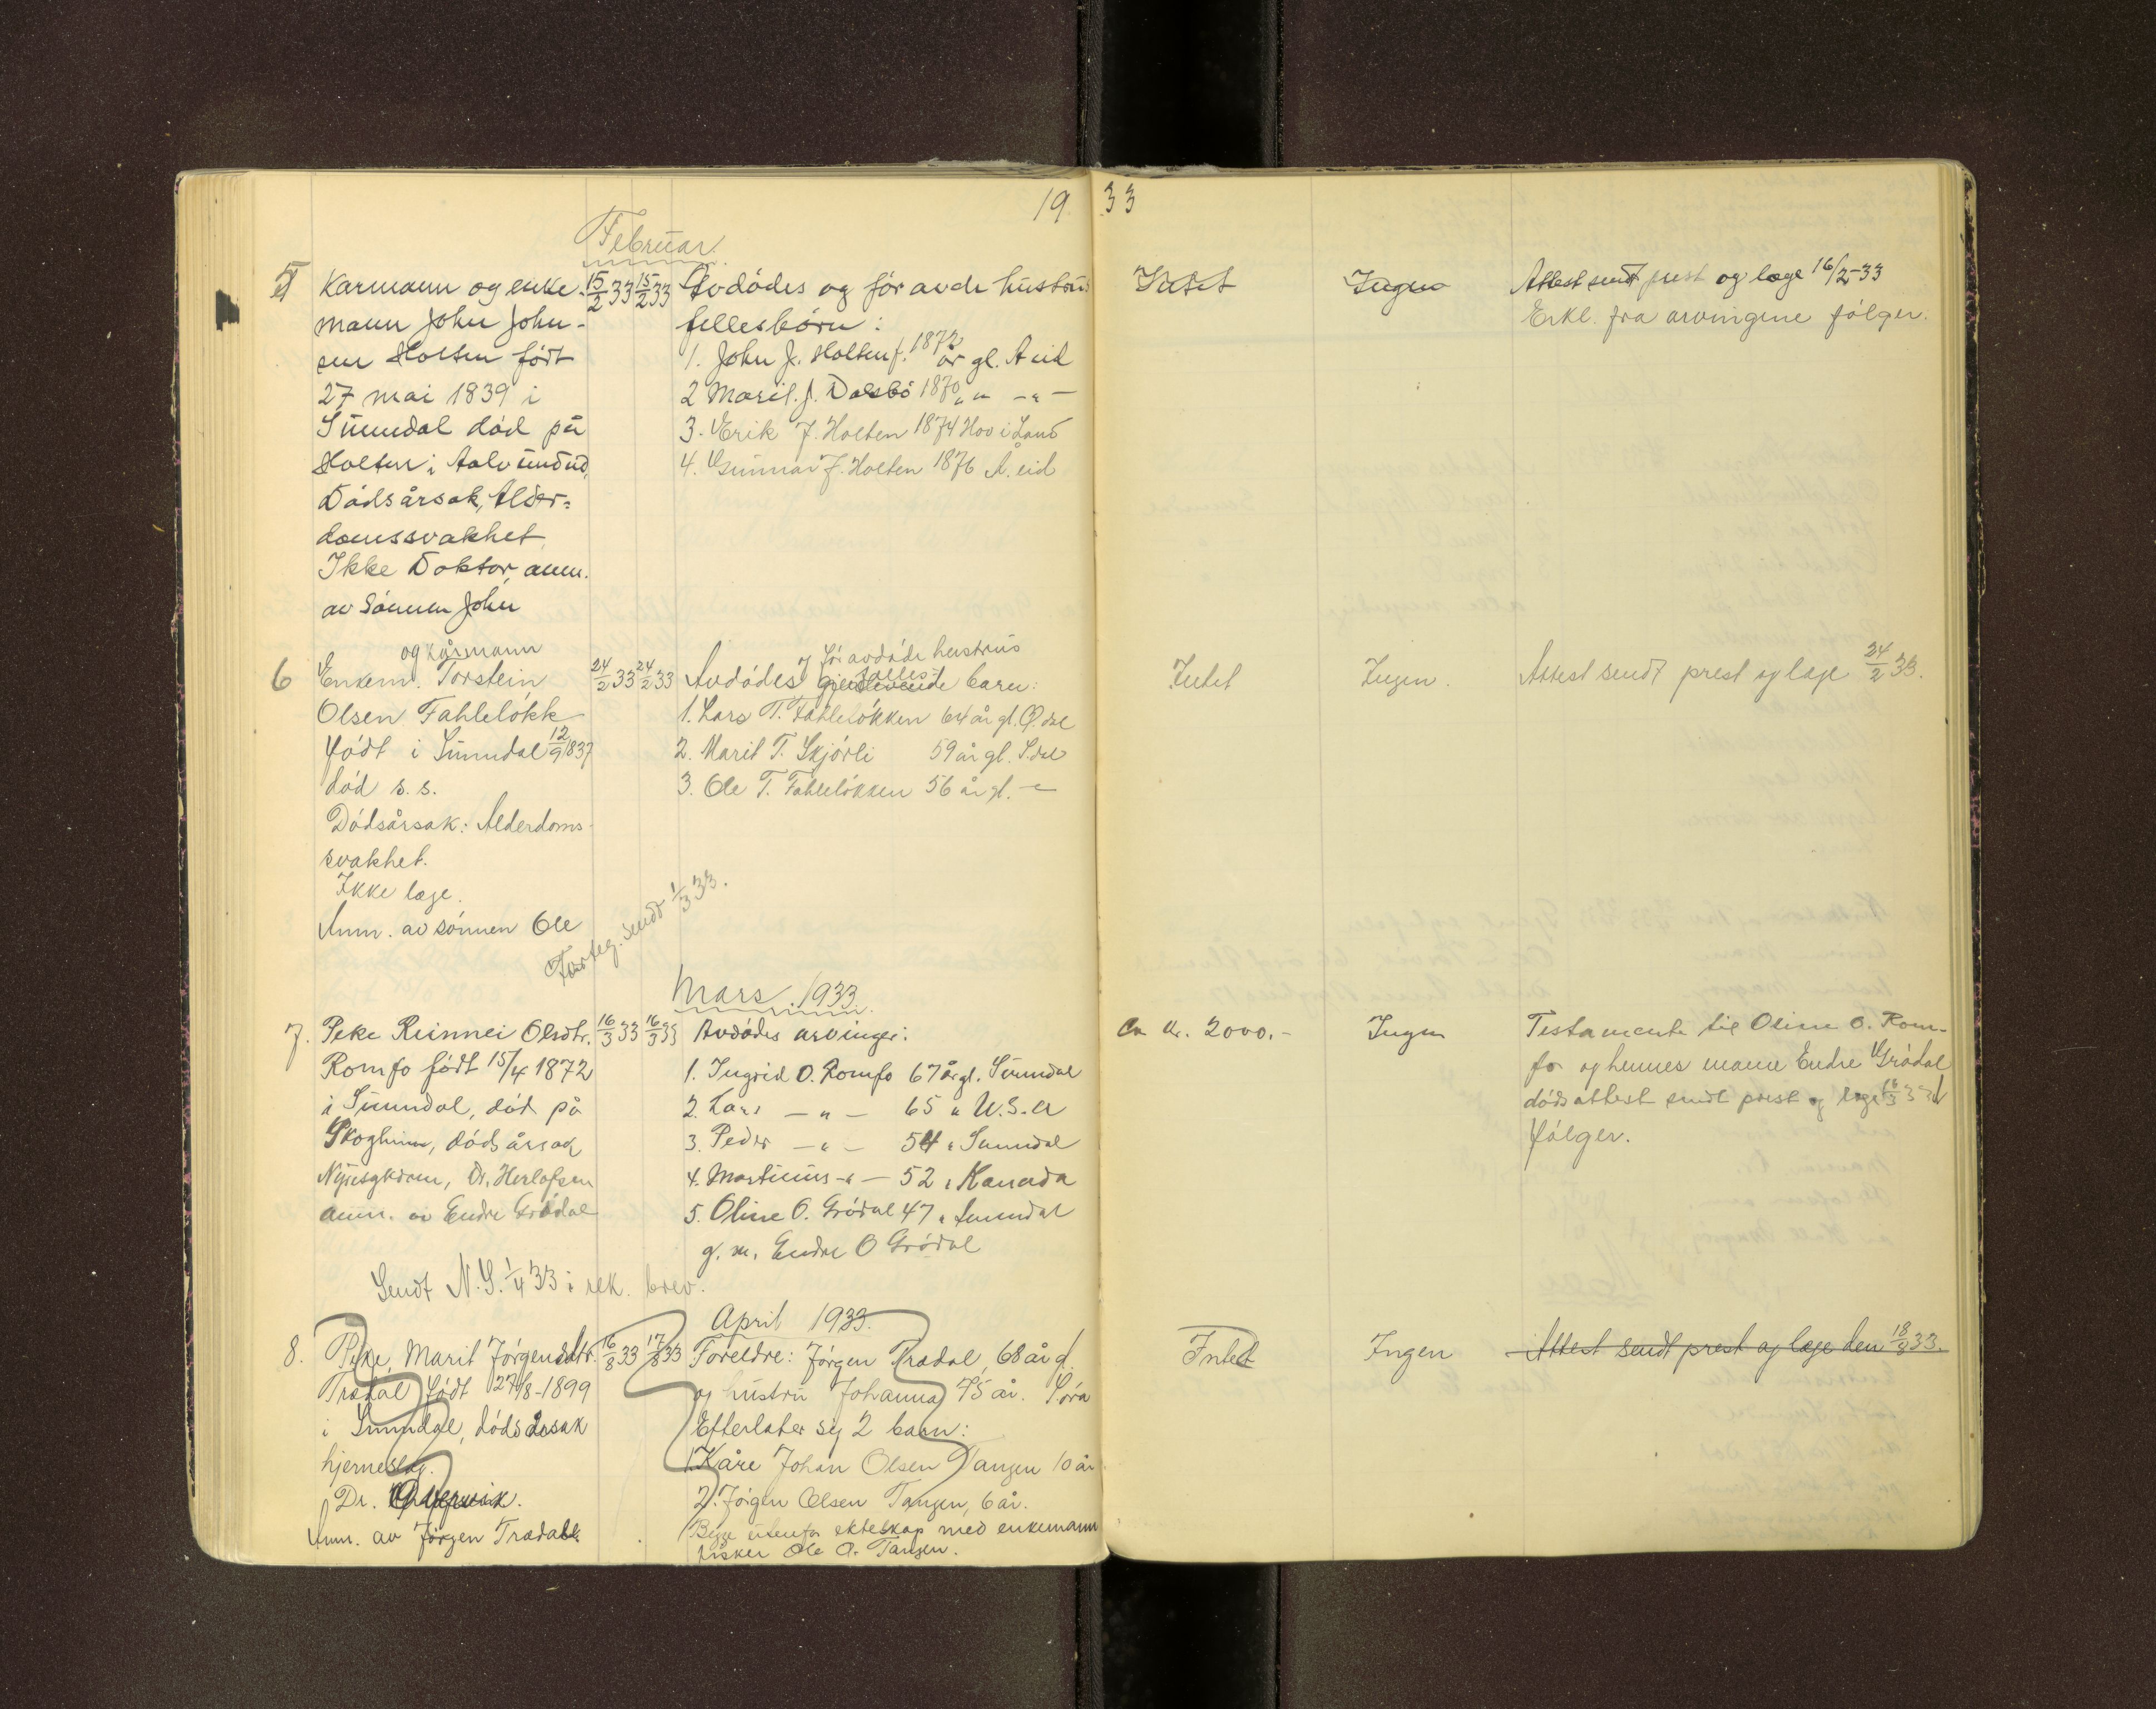 19 33
Februar.
5 Karmann og enke- 15/2 33 15/2 33 Avdødes og før avde hustrus Intet Ingen Attest sendt prest og læge 16/2-33
mann John John- fellesbørn: Erkl. fra arvingene følger.
sen Holten født 1. John J. Holten f. 1872 år gl. Å eid
27 mai 1839 i 2 Marit. J. Dalsbø 1870 " " - " -
Sunndal død på 3. Erik J. Holten 1874 Hov i Land
Holten i Aalvundeid, 4. Gunnar J. Holten 1876 Å. eid
Dødsårsak, Alder-
domssvakhet,
Ikke Doktor, anm.
av Sønnen John
og kårmann før avdøde hustrus
6 Enkem. Torstein 24/2 33 24/2 33 Avdødes gjenlevende felles- barn: Intet Ingen. Attest sendt prest og læge 24/2 33.
Olsen Fahleløkk 1. Lars T. Fahleløkken 64 år gl. Ø.dal
født i Sunndal 12/9 1837 2. Marit T. Skjørli 59 år gl. S.dal
død s. s. 3. Ole T. Fahleløkken 56 år gl. - " -
Dødsårsak: Alderdoms-
svakhet.
Ikke læge.
Anm. av sønnen Ole
Forteg. sendt 1/3 33.
Mars 1933.
7. Peke Reinnei Olsdtr. 16/3 33 16/3 33 Avdødes arvinger: Ca kr. 2000.- Ingen Testamente til Oline O. Rom-
Romfo født 15/4 1872 1. Ingrid O. Romfo 67 år gl. Sunndal fo og hennes mann Endre Grødal
i Sunndal, død på 2. Lars - " - 65 " U.S.A dødsattest sendt prest og læge 16/3 33
Skogheim, dødsårsag 3. Peder - " - 54 " Sunndal følger.
Nyresykdom, Dr. Herlofsen 4. Martinus - " - 52 " Kanada
anm. av Endre Grødal 5. Oline O. Grødal 47 " Sunndal
g. m. Endre O Grødal
Sendt N.S. 1/4 33 i rek. brev.
April 1933.
8. Pike, Marit Jørgensdtr. 16/8 33 17/8 33 Foreldre: Jørgen Trædal, 68 år g. Intet Ingen Attest sendt prest og læge den 18/8 33.
Trædal født 27/8-1899 og hustru Johanna 75 år. Søra
i Sunndal, dødsårsak Efterlater sig 2 barn:
hjerneslag. 1. Kåre Johan Olsen Tangen 10 år
Dr. 2. Jørgen Olsen Tangen, 6 år.
Anm. av Jørgen Trædal. Begge utenfor ekteskap med enkemann
fisker Ole O. Tangen.